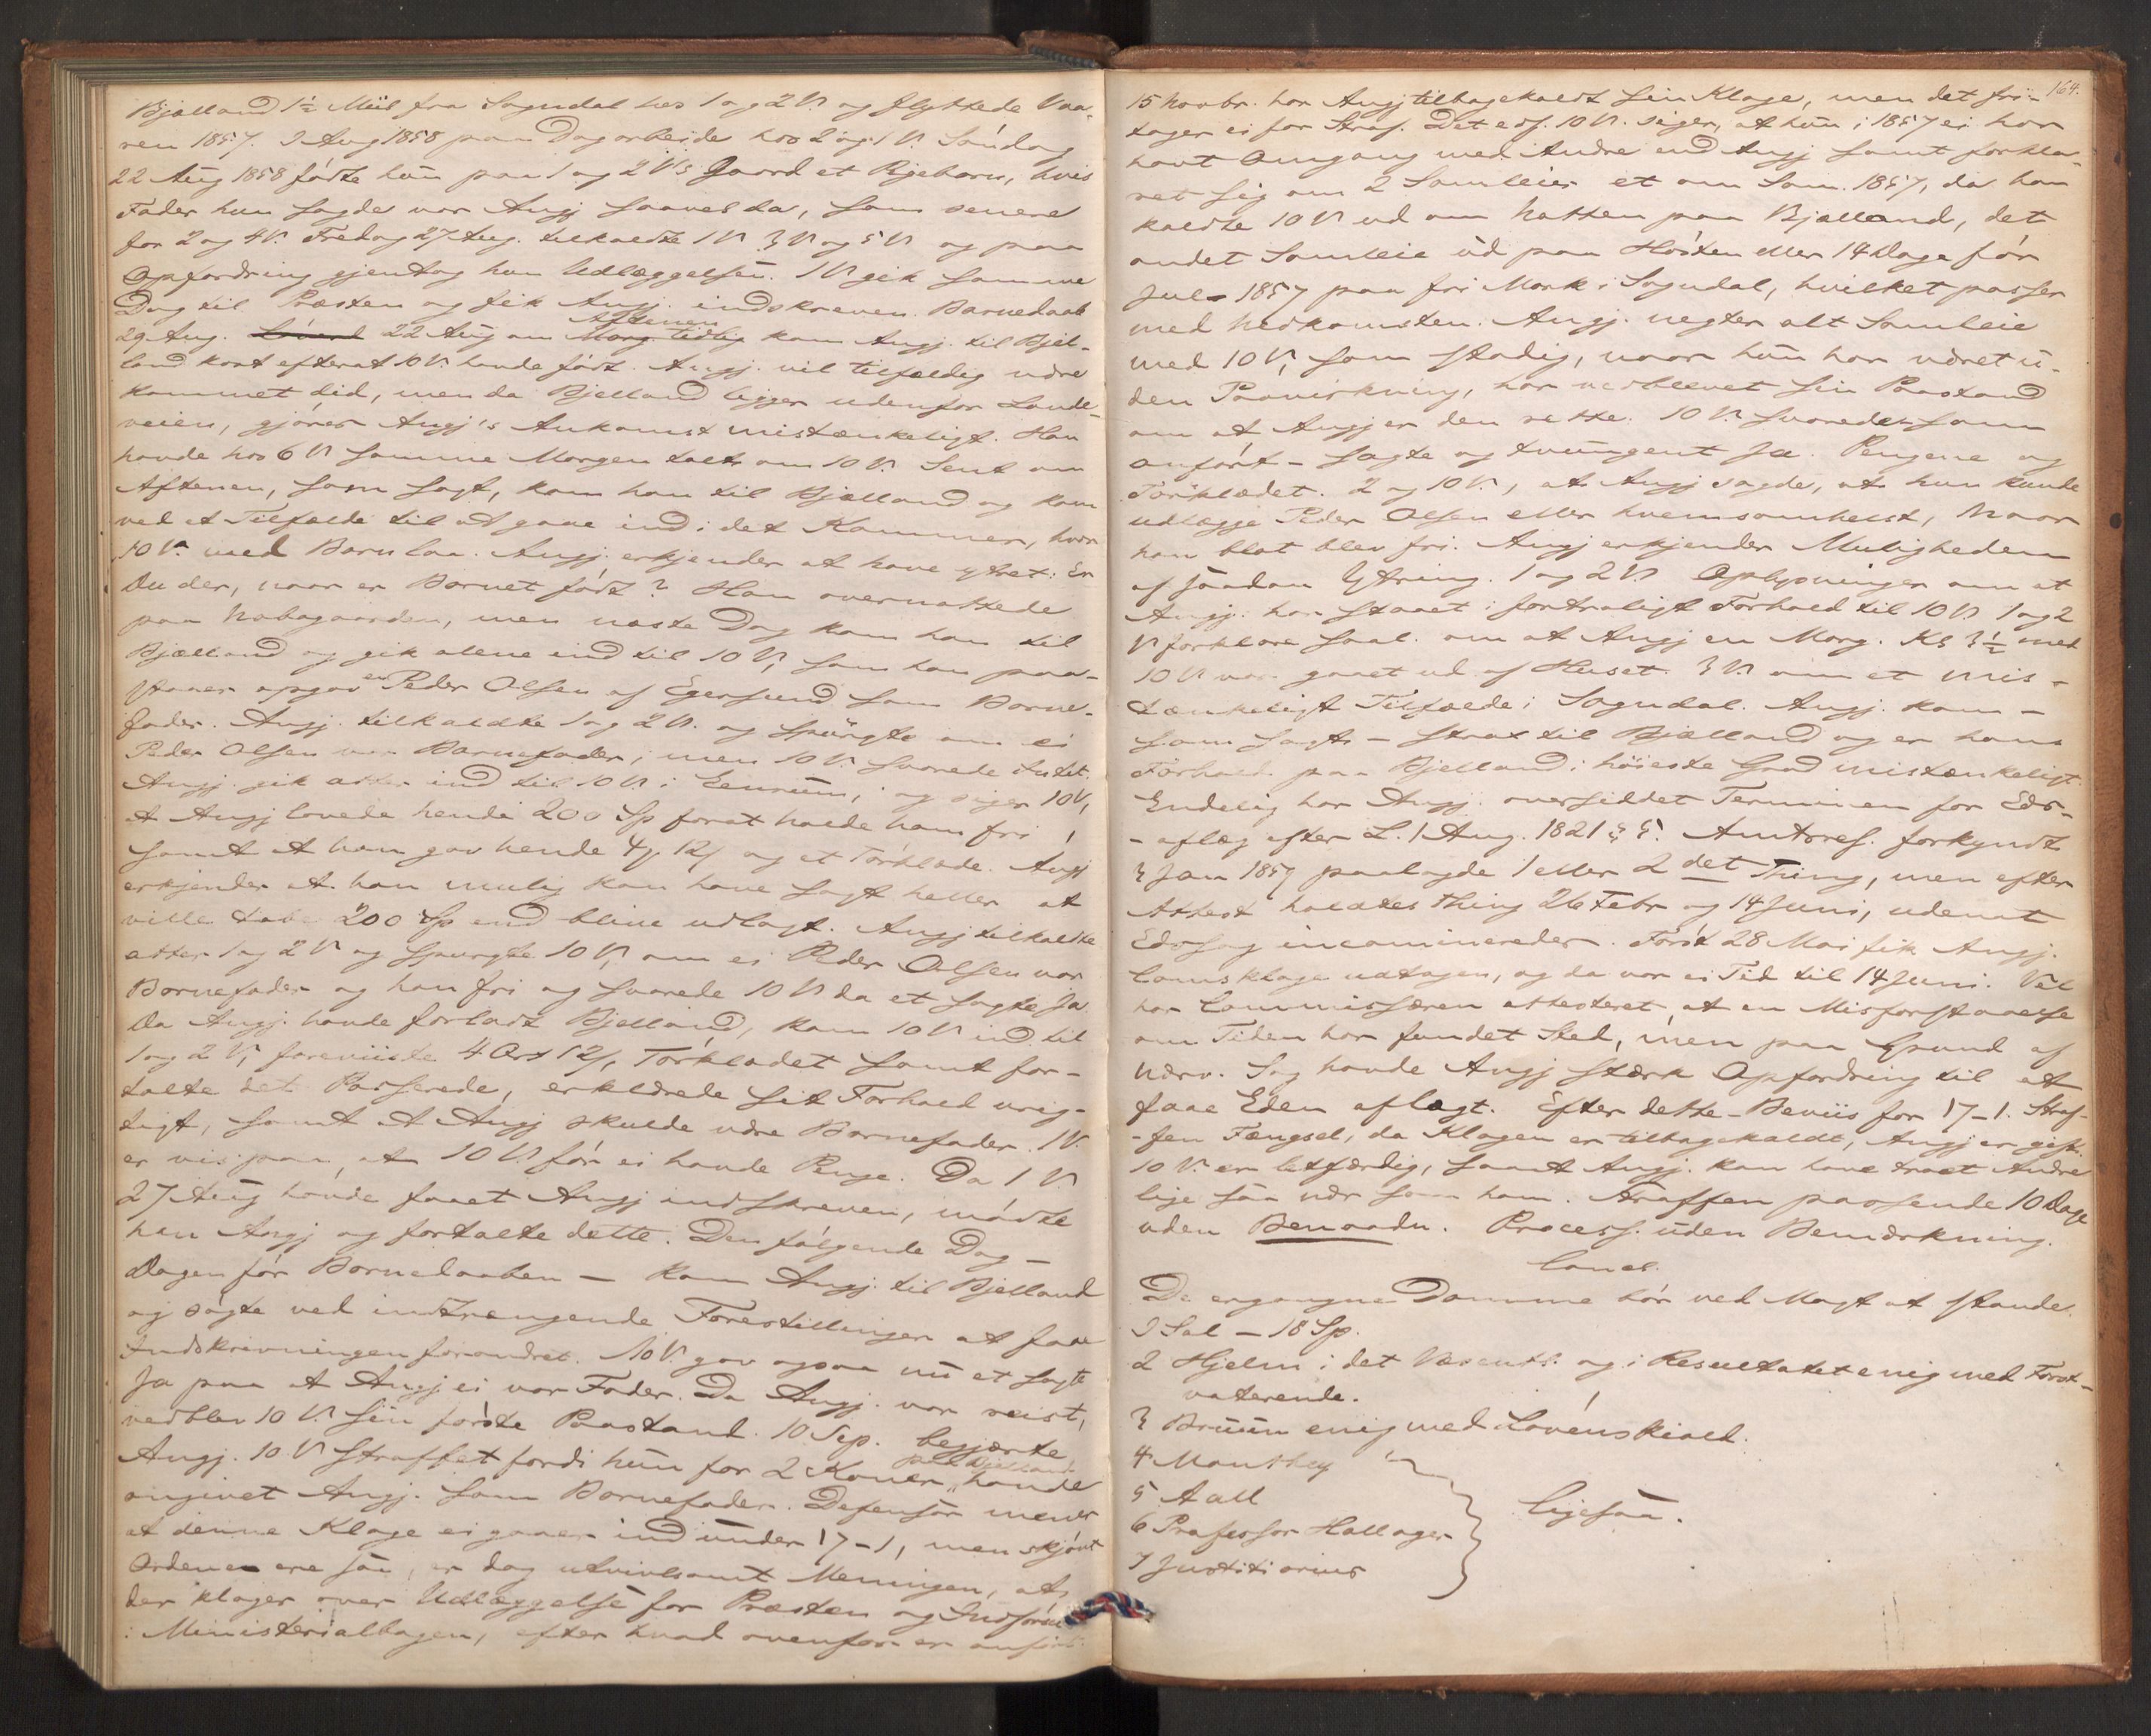 Bjælland 1½ Miil fra Sogndal hos 1 og 2 V. og flyttede Vaa-
ren 1857. I Aug 1858 paa Dagarbeide hos 2 og 1 V. Søndag
22 Aug 1858 fødte hun paa 1 og 2 V's Gaard et Pigebarn, hvis
Fader hun sagde var Angj saavel da, som senere
for 2 og 4 V. Fredag 27 Aug. tilkaldte 1 V 3 V og 5 V og paa
Opfordring gjentog hun Udlæggelsen. 1 V gik samme
Dag til Præsten og fik Angj. indskreven. Barnedaab
29 Aug. 22 Aug om Aftenen kom Angj. til Bjel-
land kort efterat 10 V. havde født. Angj. vil tilfældig være
kommet did, men da Bjelland ligger udenfor Lande-
veien, gjøres Angj's Ankomst mistænkeligt. Han
havde hos 6 V samme Morgen talt om 10 V. Sent om
Aftenen, som sagt, kom han til Bjælland og kom
ved et Tilfælde til at gaae ind i det Kammer, hvor
10 V. med Barn laa. Angj. erkjender at have ytret: Er
Du der, naar er Barnet født? Han overnattede
paa Nabogaarden, men næste Dag kom han til
Bjælland og gik alene ind til 10 V, som han paa-
staaer opgav en Peder Olsen af Egersund som Barne-
fader. Angj. tilkaldte 1 og 2 V. og spurgte om ei
Peder Olsen var Barnefader, men 10 V. svarede Intet.
Angj. gik atter ind til 10 V i Eenrum, og siger 10 V,
at Angj lovede hende 200 Sp forat holde ham fri,
samt at han gav hende 4 12 og et Tørklæde. Angj
erkjender at han mulig kan have sagt heller at
ville tabe 200 Sp end blive udlagt. Angj tilkaldte
atter 1 og 2 V og spurgte 10 V, om ei Peder Olsen var
Barnefader og han fri og svarede 10 V da et sagte Ja
Da Angj. havde forladt Bjelland, kom 10 V ind til
1 og 2 V, foreviiste 4 Ort 12, Tørklædet samt for-
talte det Passerede, erklærede sit Forhold urig-
tigt, samt at Angj skulde være Barnefader. 1 V.
er vis paa, at 10 V. før ei havde Penge. Da 1 V.
27 Aug havde faaet Angj indskreven, mødte
han Angj og fortalte dette. Den følgende Dag -
Dagen før Barnedaaben - kom Angj. til Bjelland
og søgte ved indtrængende Forestillinger at faae
Indskrivningen forandret. 10 V. gav ogsaa nu et sagte
Ja paa at Angj ei var Fader. Da Angj. var reist,
vedblev 10 V. sin første Paastand. 10 Sep. begjærte
Angj. 10 V straffet fordi hun for 2 Koner paa Bjelland havde
angivet Angj. som Barnefader. Defensor mener
at denne Klage ei gaaer ind under 17-1, men skjønt
Ordene ere saa, er dog utvivlsomt Meningen, at
der klages over Udlæggelse for Præsten og Indførsel
i Ministerialbogen, efter hvad ovenfor er anført.
164.
15 Novbr. har Angj tilbagekaldt sin Klage, men det fri-
tager ei for Straf. Det edf. 10 V. siger, at hun i 1857 ei har
havt Omgang med Andre end Angj samt forkla-
ret sig om 2 Samleier et om Som. 1857, da han
kaldte 10 V ud om Natten paa Bjælland, det
andet Samleie ud paa Høsten eller 14 Dage før
Jul 1857 paa fri Mark i Sogndal, hvilket passer
med Nedkomsten. Angj. negter alt Samleie
med 10 V, som stadig, naar hun har været u-
den Paavirkning, har vedblevet sin Paastand
om at Angj er den rette. 10 V. svarede som
anført - sagte og tvungent Ja. Pengene og
Tørklædet. 2 og 10 V., at Angj sagde, at hun kunde
udlægge Peder Olsen eller hvemsomhelst, naar
han blot blev fri. Angj erkjender Muligheden
af saadan Ytring. 1 og 2 V Oplysninger om at
Angj. har staaet i fortroligt Forhold til 10 V 1 og 2
V forklare saal. om at Angj en Morg. Kl 3½ med
10 V var gaaet ud af Huset. 3 V. om et mis-
tænkeligt Tilfælde i Sogndal. Angj. kom -
som sagt - strax til Bjælland og er hans
Forhold paa Bjelland i høieste Grad mistænkeligt.
Endelig har Angj. oversiddet Terminen for Eds-
- aflæg efter L. 1 Aug. 1821 § 5. Amtsres. forkyndt
3 Jan 1859 paalagde 1 eller 2 det Thing, men efter
Attest holdtes Thing 26 Febr og 14 Juni, udenat
Edssag incamineredes. Først 28 Mai fik Angj.
Comsklage udtagen, og da var ei Tid til 14 Juni. Vel
har Commissæren attesteret, at en Misforstaaelse
om Tiden har fundet Sted, men paa Grund af
nærv. Sag havde Angj stærk Opfordring til at
faae Eden aflagt. Efter dette Beviis for 17-1. Straf-
-fen Fængsel, da Klagen er tilbagekaldt, Angj er gift.
10 V. er letfærdig, samt Angj. kan have troet Andre
lige saa nær som ham. Straffen passende 10 Dage
uden Benaadn. Process. uden Bemærkning.
Concl.
De ergangne Domme bør ved Magt at stande.
I Sal - 18 Sp.
2 Hjelm i det Væsentl. og i Resultatet enig med Første-
voterende.
3 Bruun enig med Løvenskiold.
4 Manthey
5 Aall
6 Professor Hallager
7 Justitiarius
ligesaa.